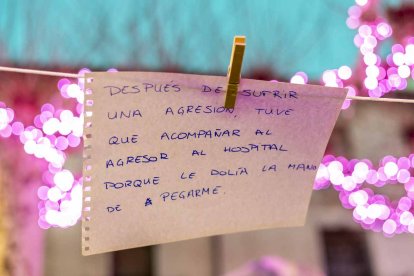 DESPUÉS DE SUFRIR
UNA AGRESIÓN, TUVE
QUE ACOMPAÑAR AL
AGRESOR AL HOSPITAL
PORQUE LE DOLÍA LA MANO
DE PEGARME.